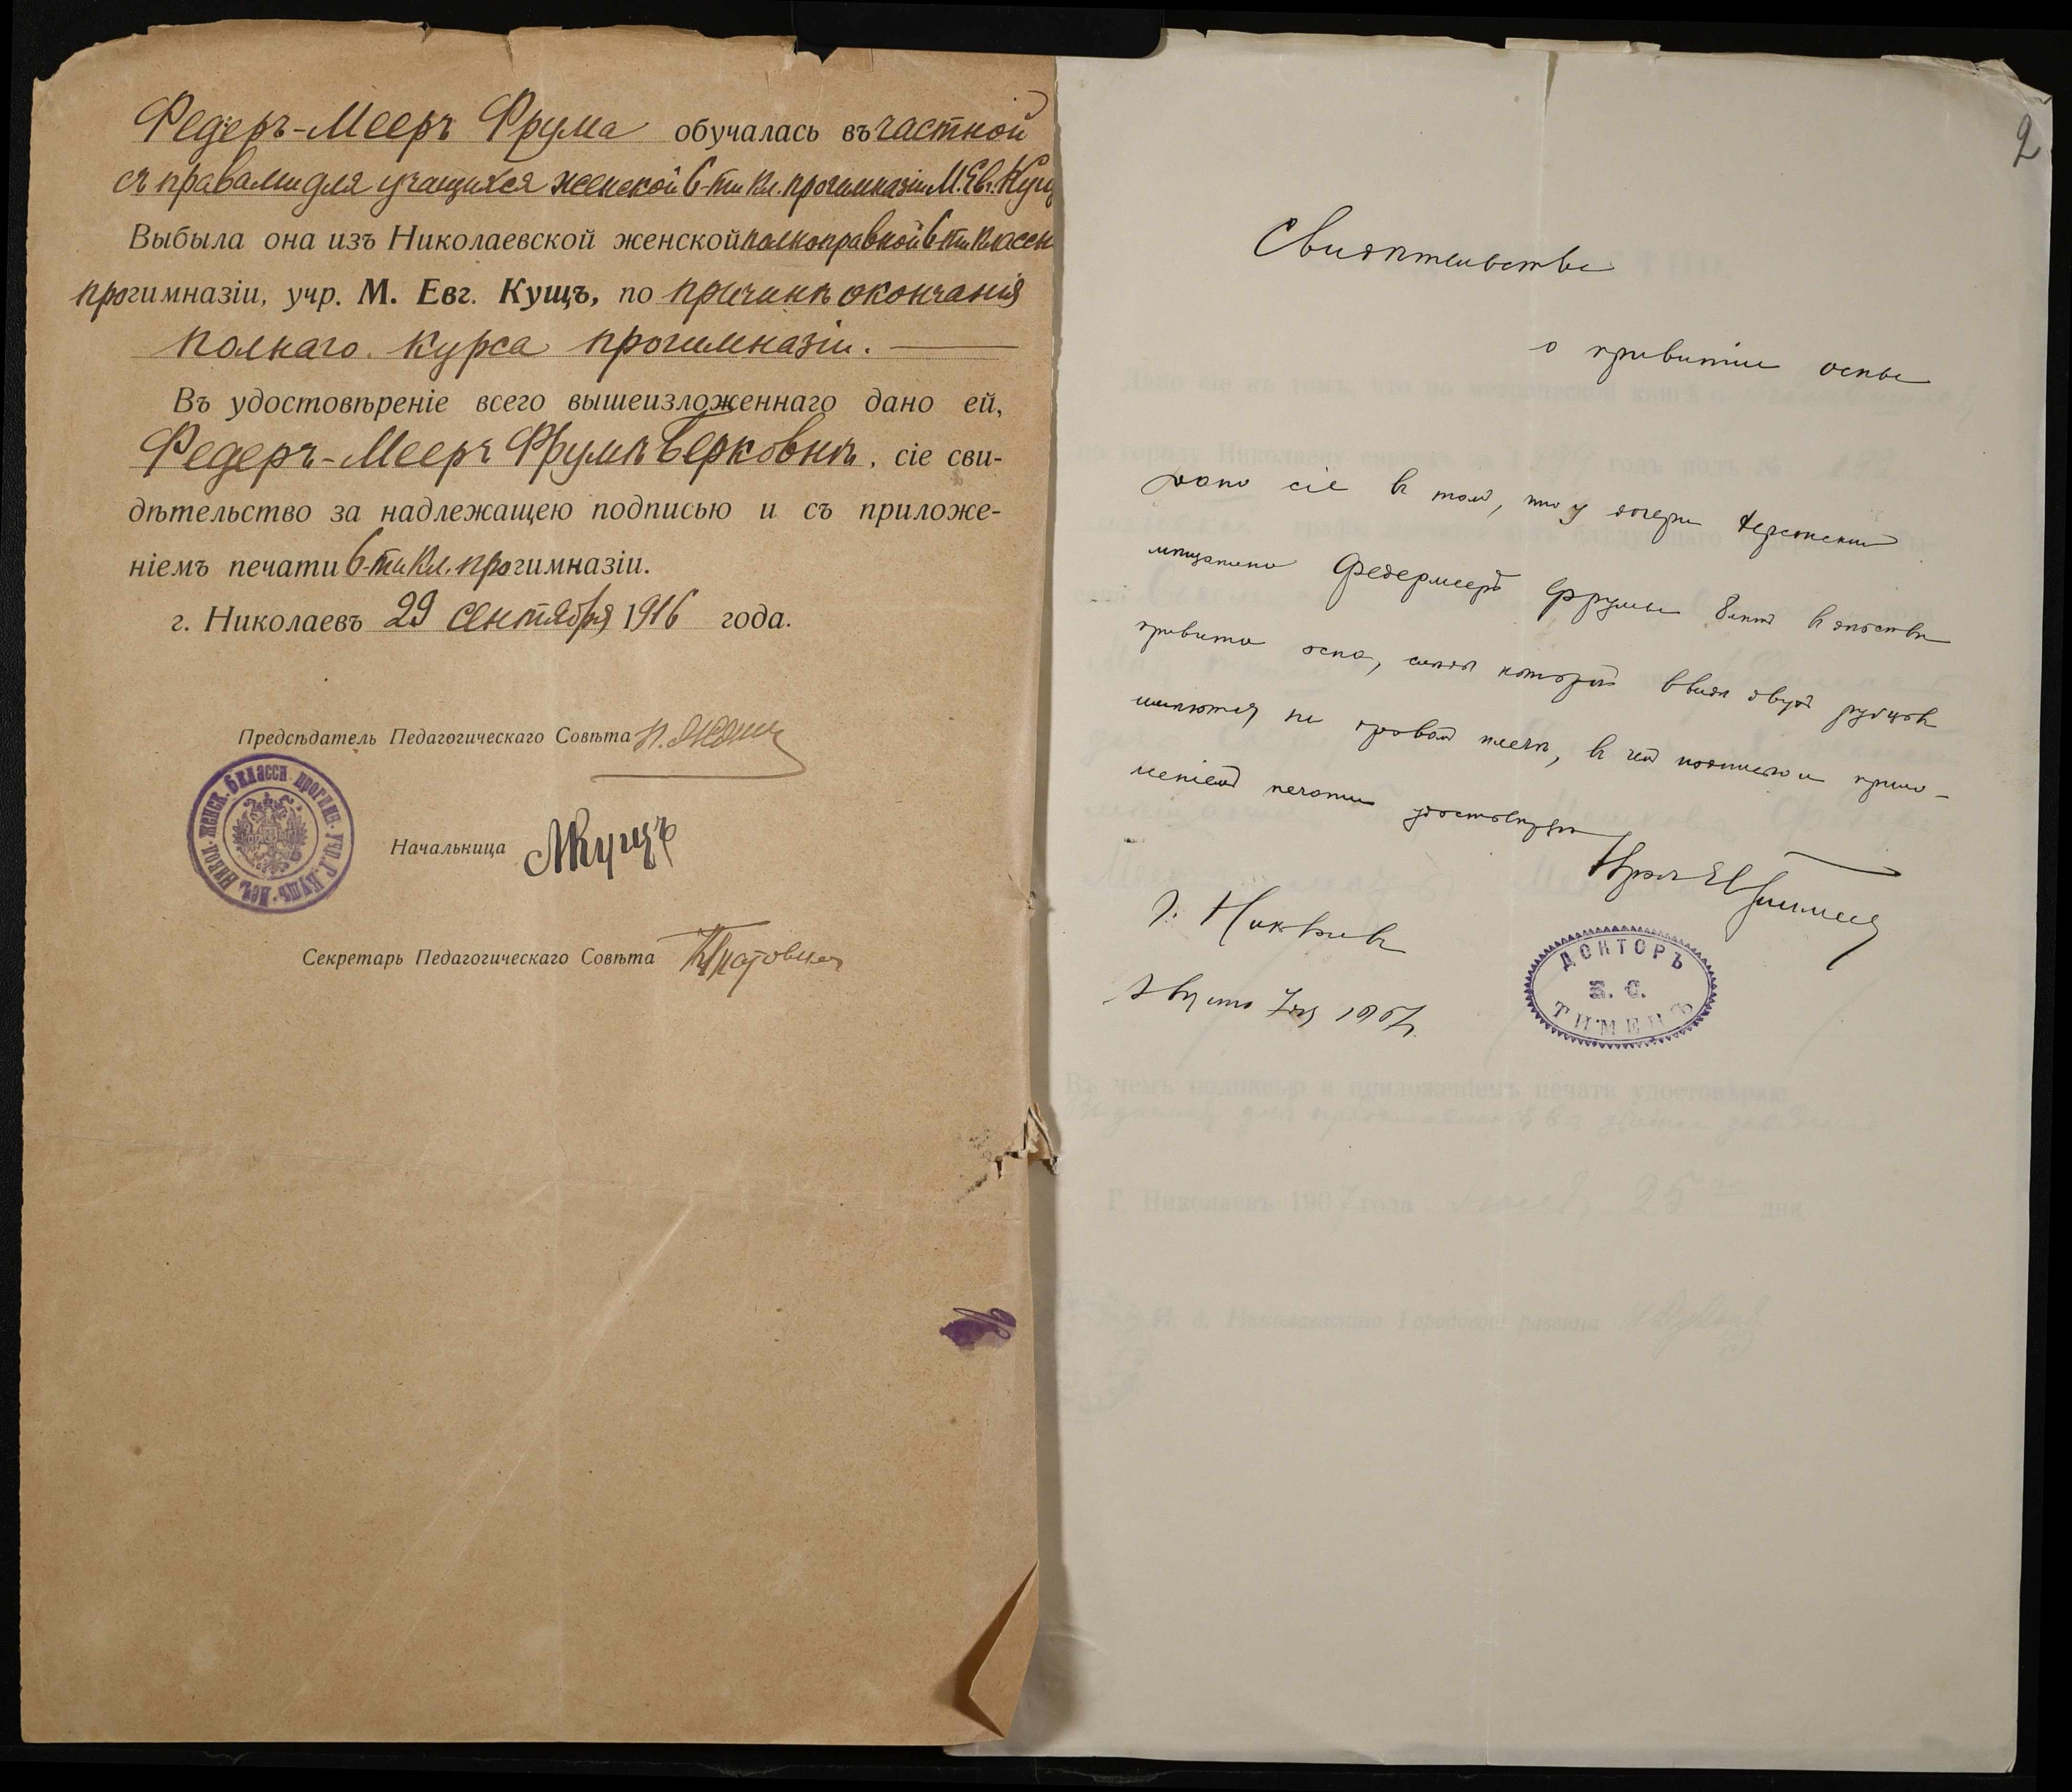 Федеръ-Мееръ Фрума обучалась въ частной
съ правами для учащихся женской 6-ти кл. прогимназіи М. Евг. Кущ
Выбыла она изъ Николаевской женской полноправной 6ти классн
прогимназіи, учр. М. Евг. Кущъ, по причинѣ окончанія
полнаго курса прогимназіи.
Въ удостовѣреніе всего вышеизложеннаго дано ей,
Федеръ-Мееръ Фрумѣ Берковнѣ, сіе сви-
дѣтельство за надлежащею подписью и съ приложе-
ніемъ печати 6-ти кл. прогимназіи.
г. Николаевъ 29 сентября 1916 года.
Предсѣдатель Педагогическаго Совѣта
Начальница МКущъ
Секретарь Педагогическаго Совѣта
2
Свидѣтельство
о привитіи оспы
Дано сіе въ томъ, что у дочери Херсонскаго
мѣщанина Федермееръ Фрумы былъ въ дѣтствѣ
привита оспа, слѣды которой въ видѣ двухъ рубцовъ
имѣются на правомъ плечѣ, въ чемъ подписью и прило-
женіемъ печати удостовѣряю
Врачъ
г. Николаевъ
Августа 7 дня 1907 г.
ДОКТОРЪ
С.
ТИМЕНЪ
Въ чемъ подписью и приложеніемъ печати удостовѣряю
Г. Николаевъ 1907 года 25 дня
И. д. Николаевскаго Городового раввина